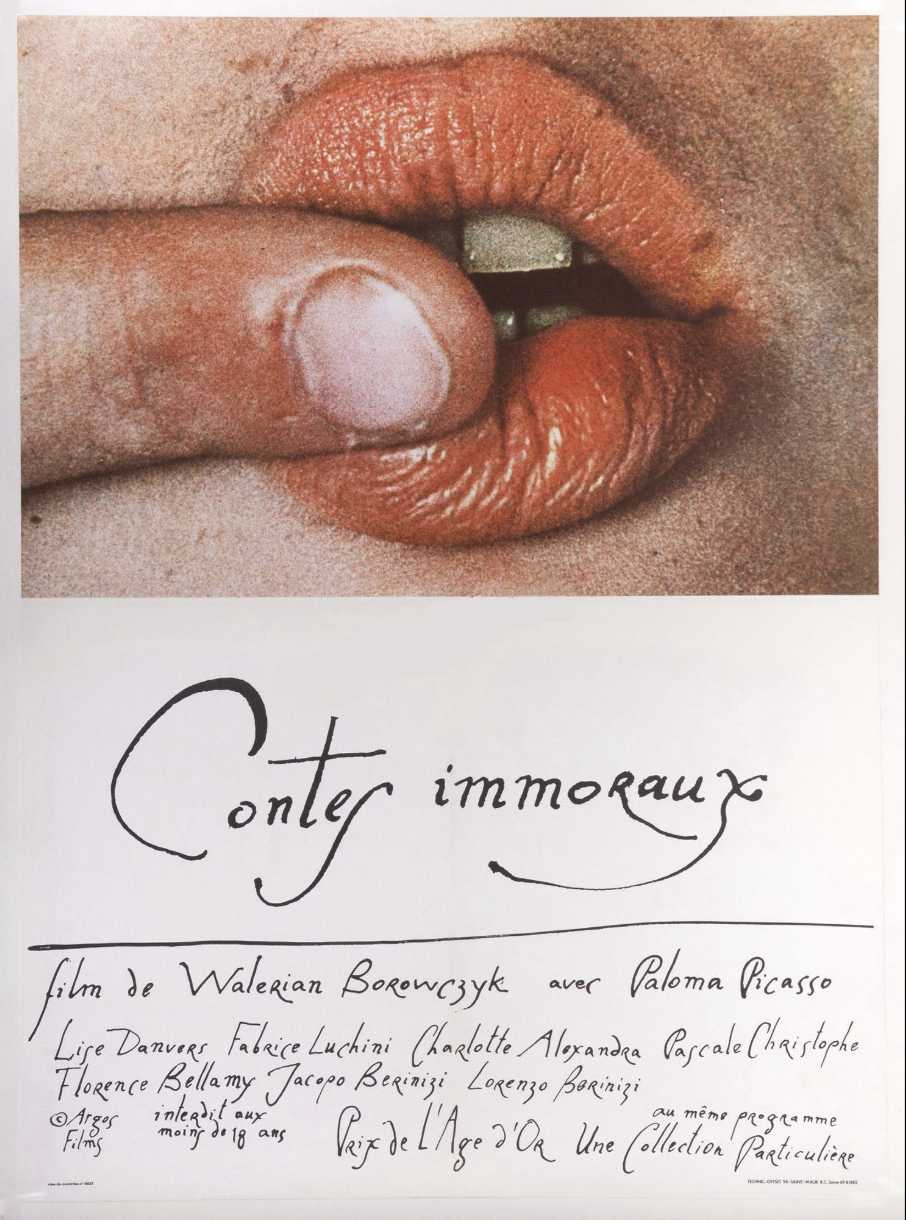 Contes immoraux
film de Walerian Borowczyk avec Paloma Picasso
Lise Danvers Fabrice Luchini Charlotte Alexandra Pascale Christophe
Florence Bellamy Jacopo Berinizi Lorenzo Berinizi
© Argos Films
interdit aux moins de 18 ans
Prix de L'Age d'Or
au même programme
Une Collection Particulière
visa de contrôle n°
TECHNIC-OFFSET 94-SAINT-MAUR R.C. Seine